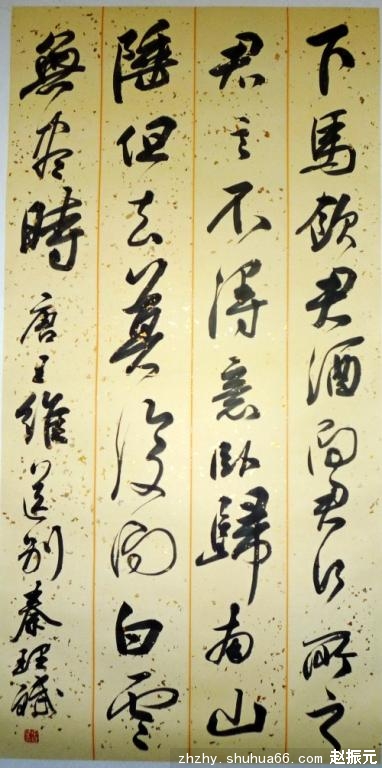 下馬飲君酒問君何所之
君言不得意臥歸南山
陲但去莫復問白雲
無盡時 唐王維送別 秦
zhzhy.shuhua66.com 赵振元